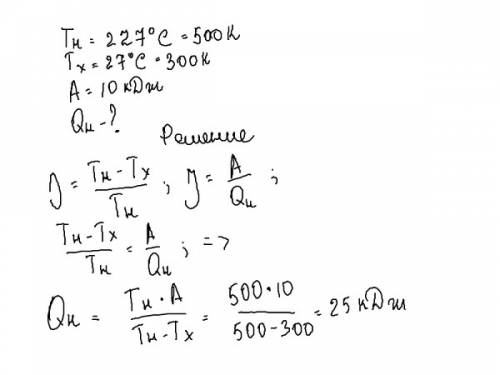 Tн = 227°C = 500К
Tх = 27°C = 300К
A = 10 кДж
Qн - ?
Решение
η = (Tн - Tх) / Tн ; η = A / Qн ;
(Tн - Tх) / Tн = A / Qн ; =>
Qн = (Tн · A) / (Tн - Tх) = (500 · 10) / (500 - 300) = 25 кДж